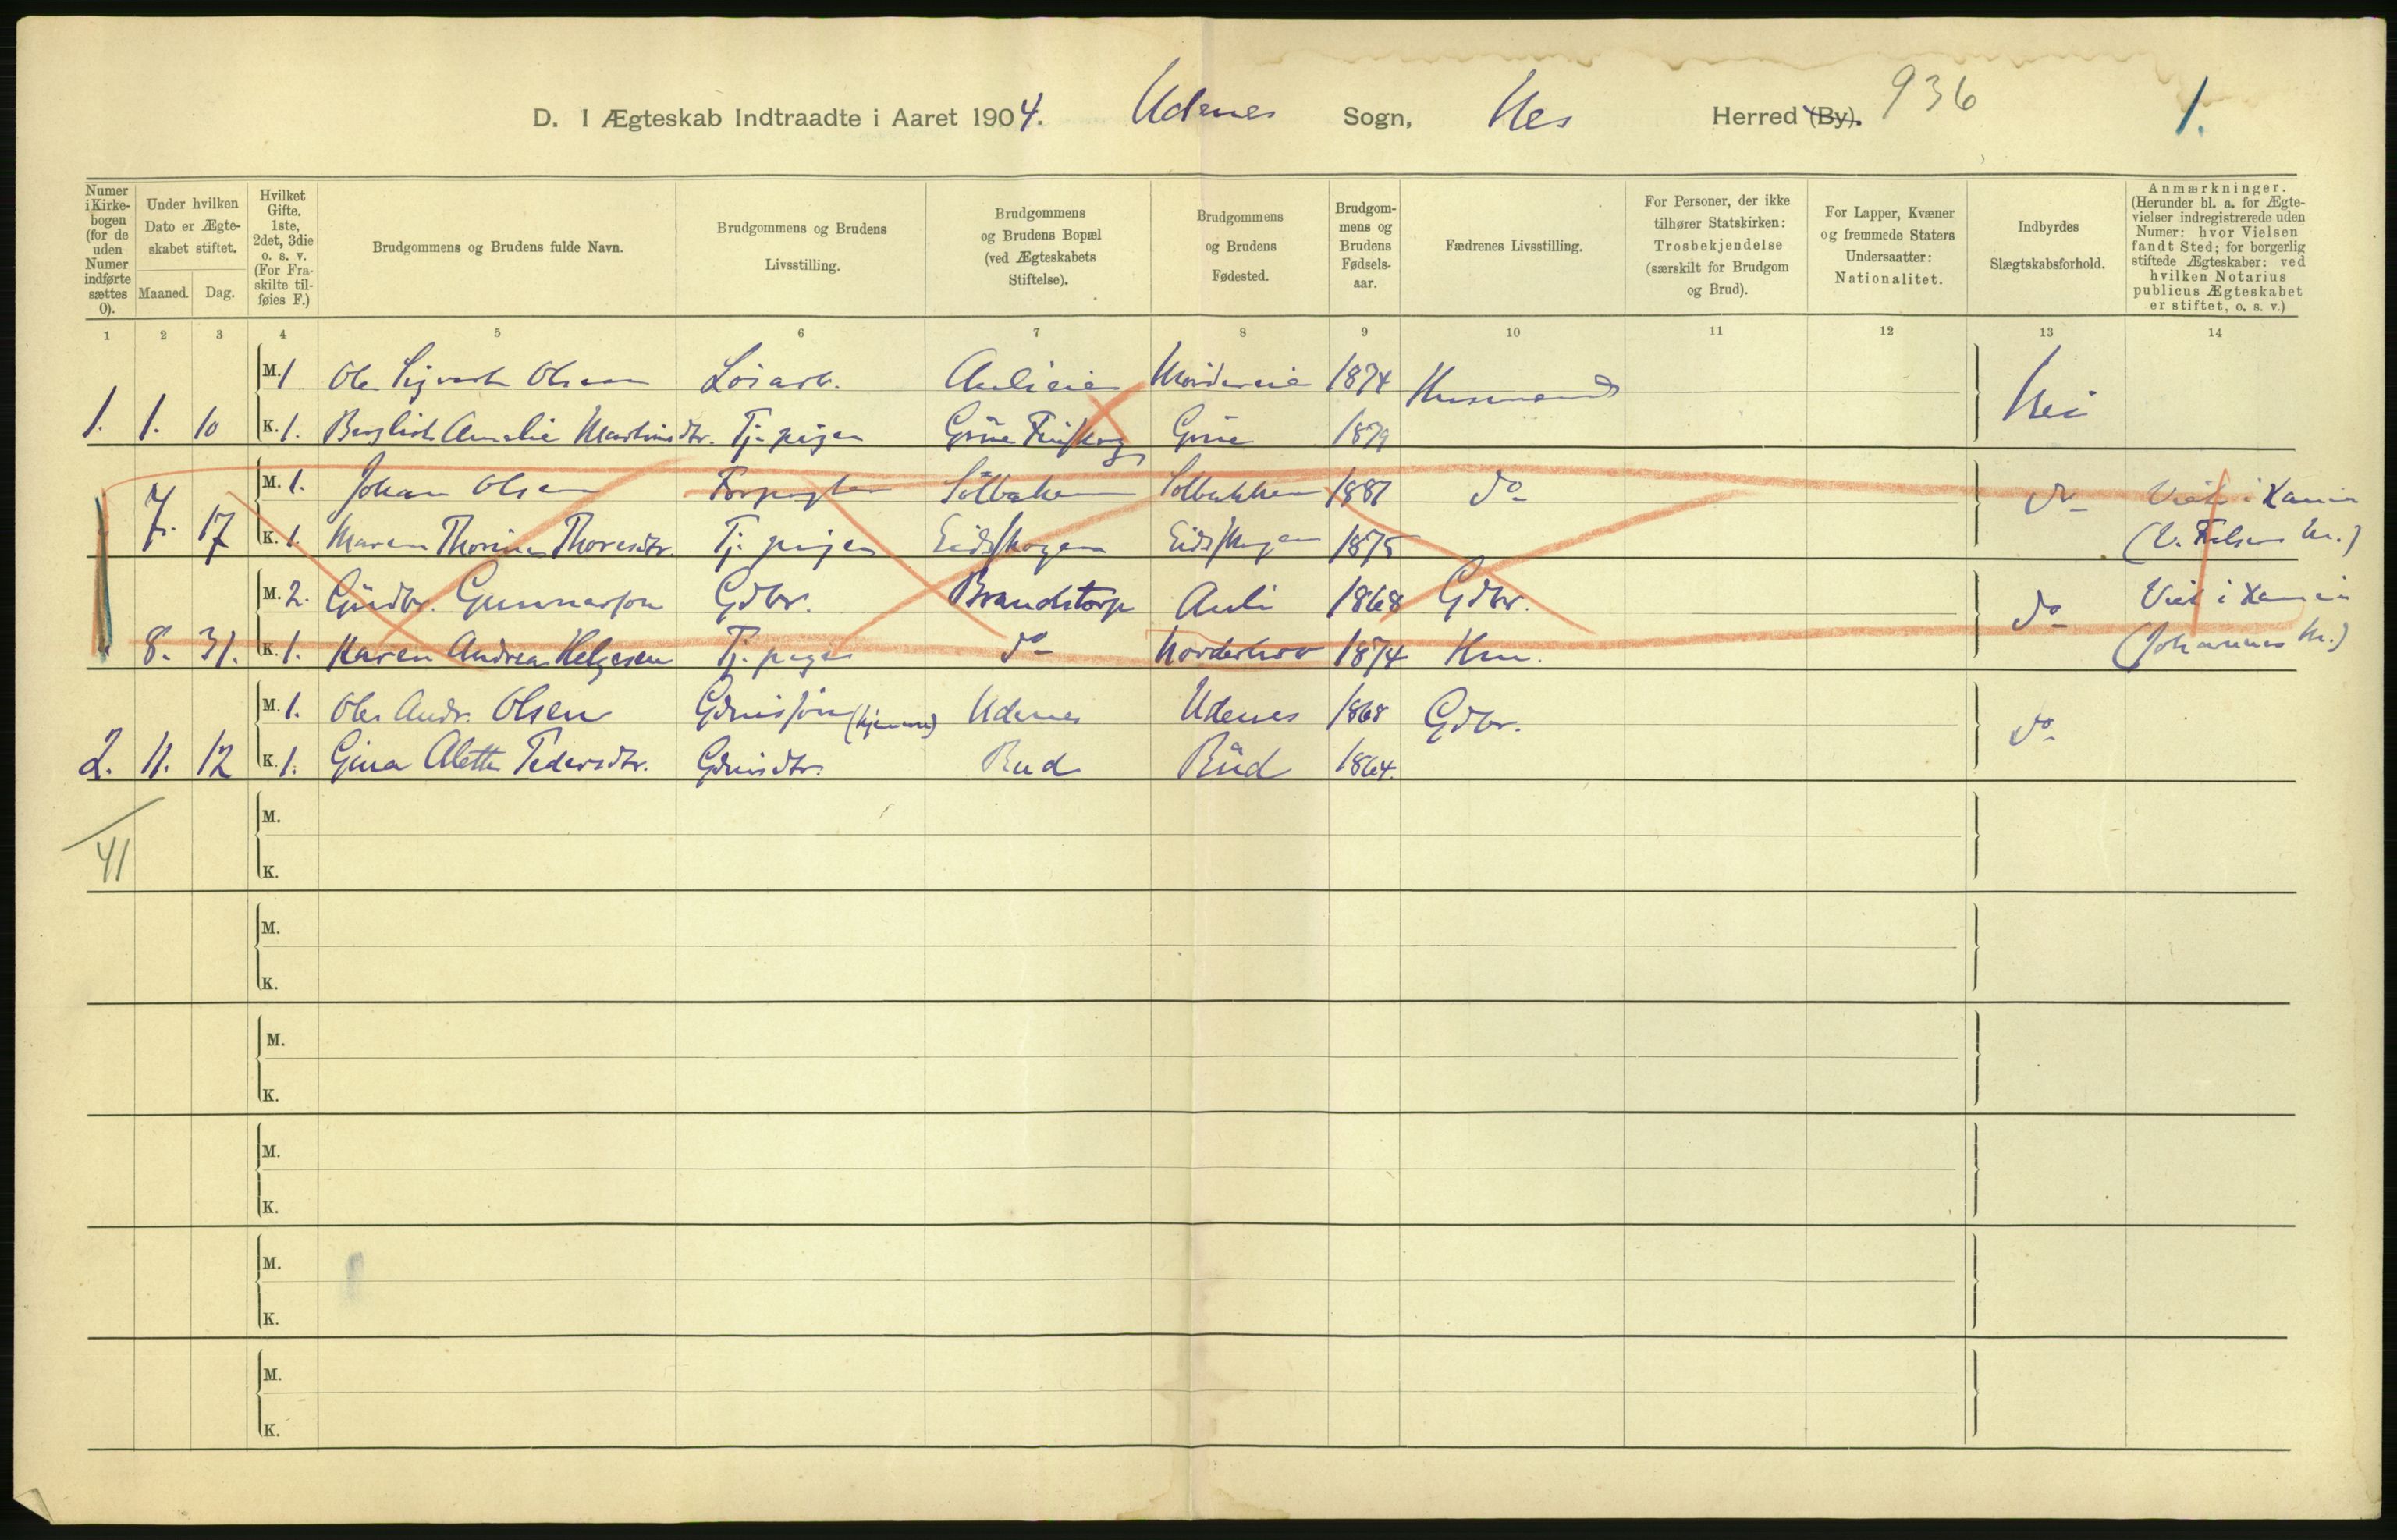 D. I Ægteskab Indtraadte i Aaret 1904. Udenes Sogn, Nes Herred (By). 936 1.
Numer i Kirkebogen (for de uden Numer indførte sættes 0).
Under hvilken Dato er Ægteskabet stiftet.
Maaned. Dag.
Hvilket Gifte. 1ste, 2det, 3die o. s. v. (For Fraskilte tilføies F.)
Brudgommens og Brudens fulde Navn.
Brudgommens og Brudens Livsstilling.
Brudgommens og Brudens Bopæl (ved Ægteskabets Stiftelse).
Brudgommens og Brudens Fødested.
Brudgommens og Brudens Fødselsaar.
Fædrenes Livsstilling.
For Personer, der ikke tilhører Statskirken: Trosbekjendelse (særskilt for Brudgom og Brud).
For Lapper, Kvæner og fremmede Staters Undersaatter: Nationalitet.
Indbyrdes Slægtskabsforhold.
Anmærkninger. (Herunder bl. a. for Ægtevielser indregistrerede uden Numer: hvor Vielsen fandt Sted; for borgerlig stiftede Ægteskaber: ved hvilken Notarius publicus Ægteskabet er stiftet, o. s. v.)
1 2 3 4 5 6 7 8 9 10 11 12 13 14
M. 1 Ole Sigvart Olsen Løsarb. Aulieie 1874 Husmænd Nei
1. 1. 10 K. 1. Amalie Martinsdtr. Tj. pigen Grue Finskog Grue 1879
M. 1. Johan Olsen Forpagter Solbakken Solbakken 1887 do do Viet i Xania
7. 17 K. 1. Maren Thorine Thoresdtr. Tj. pigen Eidskogen Eidskogen 1875 (V. Frelsers M.)
M. 2. Gudbr. Gunnarson Gdbr. Brandstorp Auli 1868 Gdbr. do Viet i Xania
8. 31. K. 1. Karen Andrea Helgesen Tj. pigen do Norderhov 1874 Hm. (Johannes M.)
M. 1. Ole Andr. Olsen Gdmssøn (hjemme) Udenes Udenes 1868 Gdbr. do
2. 11. 12 K. 1. Gina Alette Pedersdtr. Gdmsdtr. Rud Rud 1864.
M.
41 K.
M.
K.
M.
K.
M.
K.
M.
K.
M.
K.